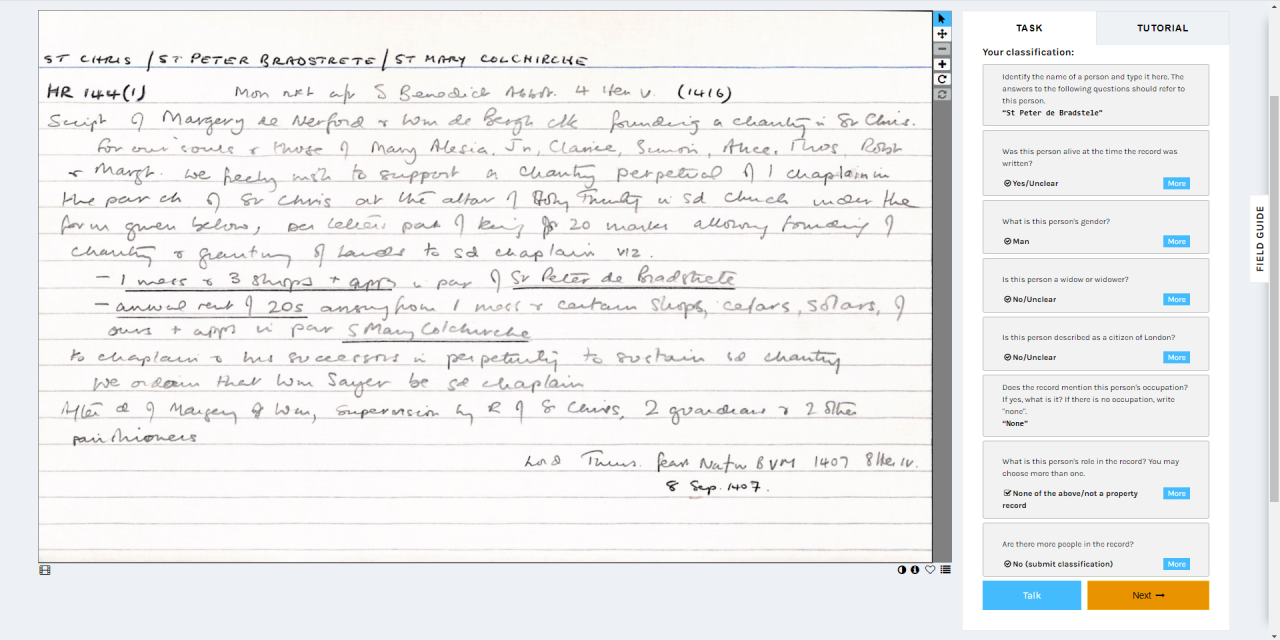 ST CHRIS / ST PETER BRADSTRETE / ST MARY COLCHIRCHE
HR 144(1) Mon nxt a/r S Benedict Abbot. 4 Hen V. (1416)
Script of Margery de Nerford & Wm de Bergh clk founding a chantry in St Chris.
For our souls & those of Mary Alesia, Jn, Clarice, Simon, Alice, Thos, Robt
& Margt. We freely wish to support a chantry perpetual of 1 chaplain in
the par ch of St Chris at the altar of Holy Trinity in sd church under the
form given below, per letters pat of king for 20 marks allowing founding of
chantry & granting of lands to sd chaplain viz.
– 1 mess & 3 shops + apps in par of St Peter de Bradstrete
– annual rent of 20s arising from 1 mess & certain shops, celars, solars, of
ours + apps in par S Mary Colchirche
to chaplain & his successors in perpetuity to sustain sd chantry
We ordain that Wm Sayer be sd chaplain
After d of Margery & Wm, supervision by R of St Chris, 2 guardians & 2 other
parishioners
Lond Thurs. feast Nativ BVM 1407 8 He. IV.
8 Sep. 1407.
TASK
TUTORIAL
Your classification:
Identify the name of a person and type it here. The
answers to the following questions should refer to
this person.
"St Peter de Bradstele"
Was this person alive at the time the record was
written?
Yes/Unclear
More
What is this person's gender?
Man
More
Is this person a widow or widower?
No/Unclear
More
Is this person described as a citizen of London?
No/Unclear
More
Does the record mention this person's occupation?
If yes, what is it? If there is no occupation, write
"none".
"None"
What is this person's role in the record? You may
choose more than one.
None of the above/not a property
record
More
Are there more people in the record?
No (submit classification)
More
Talk
Next →
FIELD GUIDE